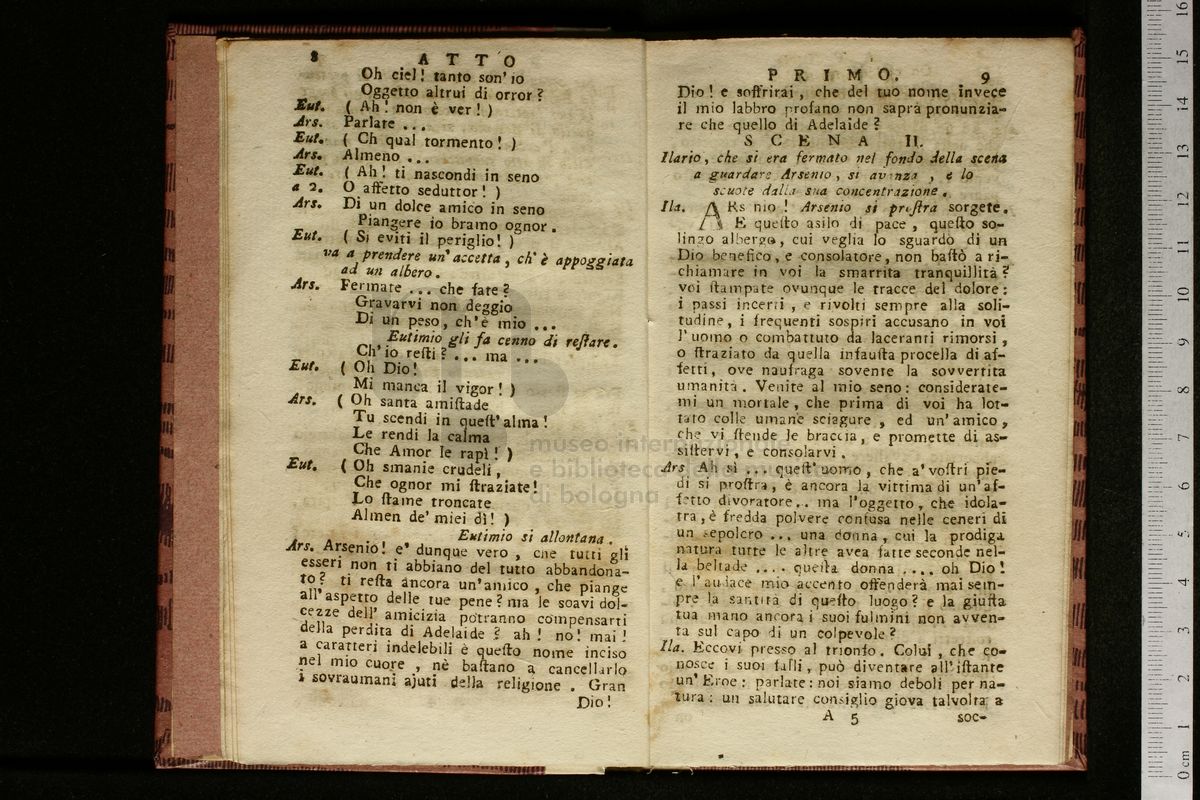 8 ATTO
Oh ciel! tanto son' io
Oggetto altrui di orror?
Eut. ( Ah! non è ver! )
Ars. Parlate ...
Eut. ( Ch qual tormento! )
Ars. Almeno ...
Eut. ( Ah! ti nascondi in seno
a 2. O affetto seduttor! )
Ars. Di un dolce amico in seno
Piangere io bramo ognor.
Eut. ( Si eviti il periglio! )
va a prendere un' accetta, ch' è appoggiata
ad un albero.
Ars. Fermate ... che fate?
Gravarvi non deggio
Di un peso, ch'è mio ...
Eutimio gli fa cenno di reſtare.
Ch' io reſti? ... ma ...
Eut. ( Oh Dio!
Mi manca il vigor! )
Ars. ( Oh santa amiſtade
Tu scendi in queſt' alma!
Le rendi la calma
Che Amor le rapì! )
Eut. ( Oh smanie crudeli,
Che ognor mi ſtraziate!
Lo ſtame troncate
Almen de' miei dì! )
Eutimio si allontana.
Ars. Arsenio! e' dunque vero, che tutti gli
esseri non ti abbiano del tutto abbandona-
to? ti reſta ancora un' amico, che piange
all' aspetto delle tue pene? ma le soavi dol-
cezze dell' amicizia potranno compensarti
della perdita di Adelaide? ah! no! mai!
a caratteri indelebili è queſto nome inciso
nel mio cuore, nè baſtano a cancellarlo
i sovraumani ajuti della religione. Gran
Dio!
PRIMO. 9
Dio! e soffrirai, che del tuo nome invece
il mio labbro profano non saprà pronunzia-
re che quello di Adelaide?
SCENA II.
Ilario, che si era fermato nel fondo della scena
a guardare Arsenio, si avanza, e lo
scuote dalla sua concentrazione.
Ila. ARs nio! Arsenio si proſtra sorgete.
E queſto asilo di pace, queſto so-
lingo albergo, cui veglia lo sguardo di un
Dio benefico, e consolatore, non baſtò a ri-
chiamare in voi la smarrita tranquillità?
voi ſtampate ovunque le tracce del dolore:
i passi incerti, e rivolti sempre alla soli-
tudine, i frequenti sospiri accusano in voi
l' uomo o combattuto da laceranti rimorsi,
o ſtraziato da quella infauſta procella di af-
fetti, ove naufraga sovente la sovvertita
umanità. Venite al mio seno: considerate-
mi un mortale, che prima di voi ha lot-
tato colle umane sciagure, ed un' amico,
che vi ſtende le braccia, e promette di as-
siſtervi, e consolarvi.
Ars Ah sì ... queſt' uomo, che a' voſtri pie-
di si proſtra, è ancora la vittima di un' af-
fetto divoratore.. ma l'oggetto, che idola-
tra, è fredda polvere confusa nelle ceneri di
un sepolcro ... una donna, cui la prodiga
natura tutte le altre avea fatte seconde nel-
la beltade .... queſta donna .... oh Dio!
e l' audace mio accento offenderà mai sem-
pre la santità di queſto luogo? e la giuſta
tua mano ancora i suoi fulmini non avven-
ta sul capo di un colpevole?
Ila. Eccovi presso al trionfo. Colui, che co-
nosce i suoi falli, può diventare all' iſtante
un' Eroe: parlate: noi siamo deboli per na-
tura: un salutare consiglio giova talvolta a
A 5 soc-
museo internazionale
e biblioteca della musica
di bologna
0 cm 1 2 3 4 5 6 7 8 9 10 11 12 13 14 15 16